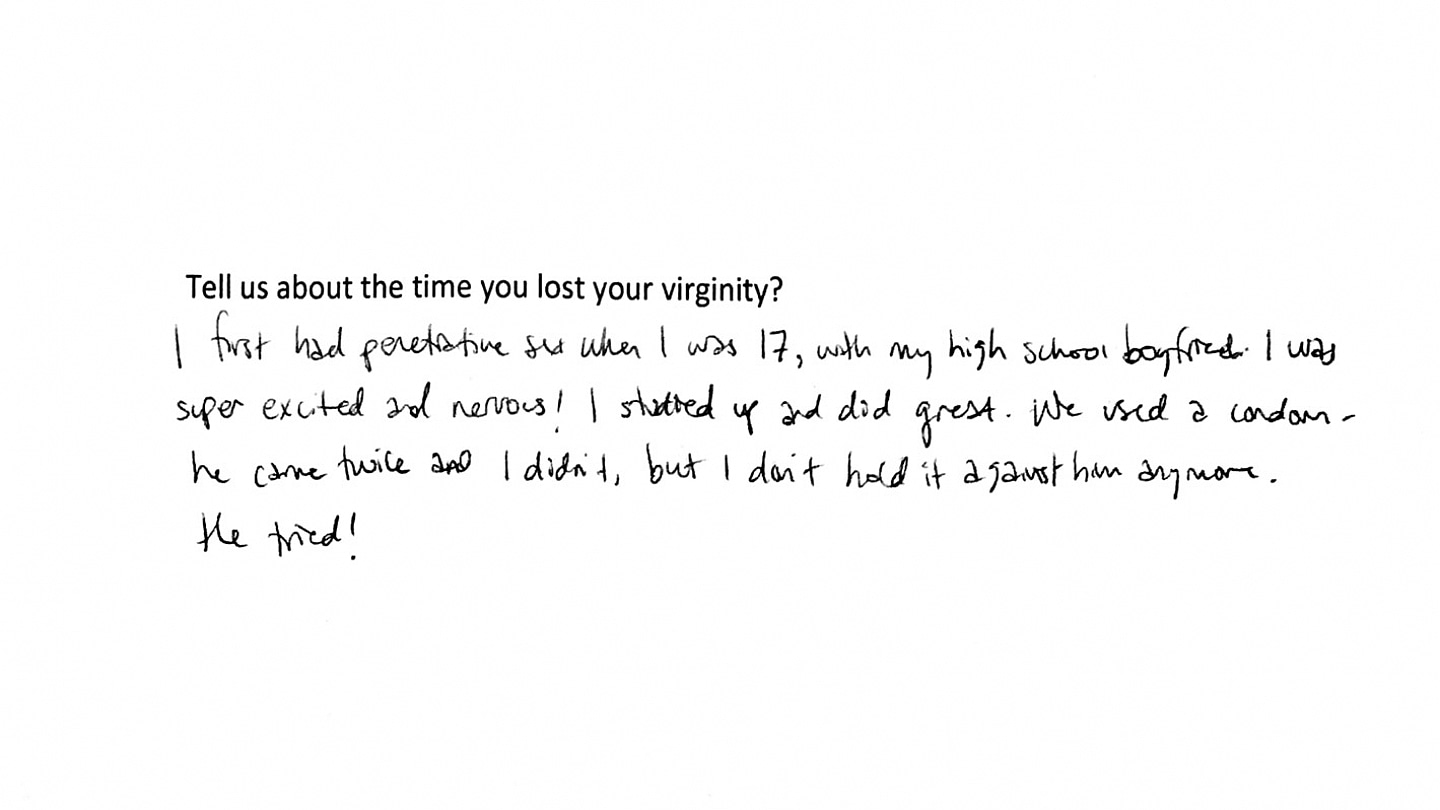 Tell us about the time you lost your virginity?
I first had penetrative sex when I was 17, with my high school boyfriend. I was
super excited and nervous! I studied up and did great. We used a condom -
he came twice and I didn't, but I don't hold it against him anymore.
He tried!